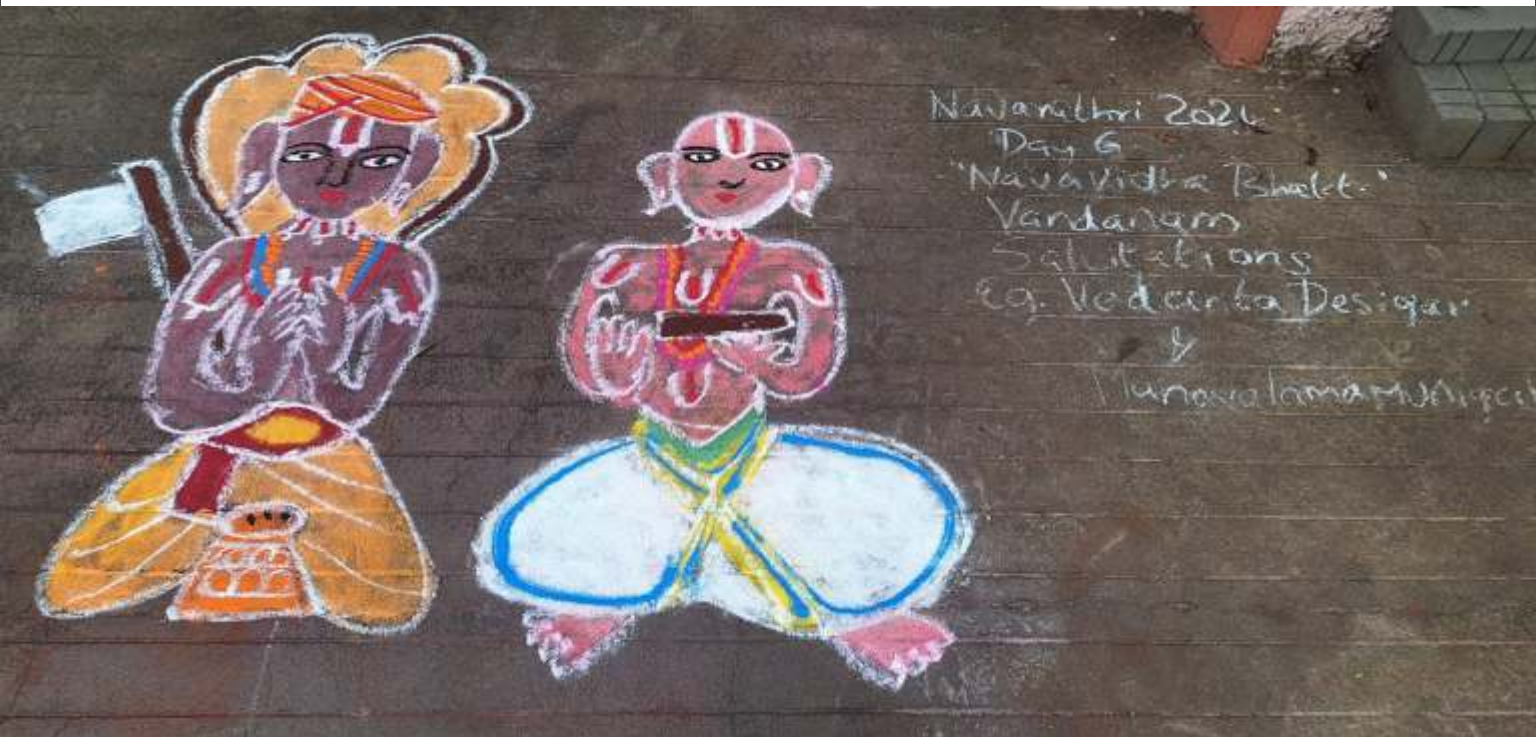 Navarathri 2024
Day 6
"Navavidha Bhakti"
Vandanam
Salutations
eg. Vedanta Desigar
&
Manavalamamunigal